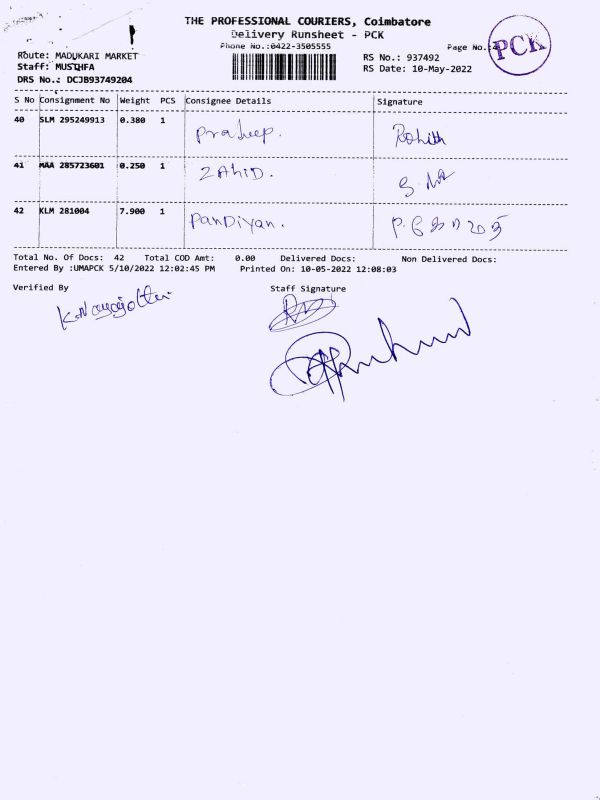 THE PROFESSIONAL COURIERS, Coimbatore
Delivery Runsheet - PCK
Phone No.:0422-3505555
Page No.:
PCK
Route: MADUKARI MARKET
Staff: MUSTHFA
DRS No.: DCJB93749204
RS No.: 937492
RS Date: 10-May-2022
S No Consignment No Weight PCS Consignee Details Signature
40 SLM 295249913 0.380 1 Pradeep. Rohith
41 MAA 285723601 0.250 1 ZAhiD.
42 KLM 281004 7.900 1 PanDiyan.
Total No. Of Docs: 42 Total COD Amt: 0.00 Delivered Docs: Non Delivered Docs:
Entered By :UMAPCK 5/10/2022 12:02:45 PM Printed On: 10-05-2022 12:08:03
Verified By Staff Signature